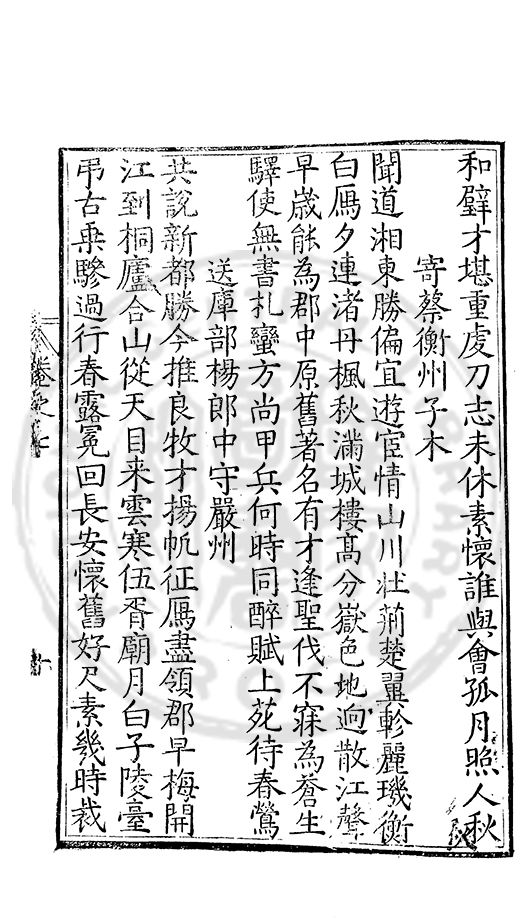 和璧才堪重虔刀志未休素懷誰與會孤月照人秋
寄蔡衡州子木
聞道湘東勝偏宜遊宦情山川壯荊楚翼軫麗璣衡
白鴈夕連渚丹楓秋滿城樓髙分嶽色地逈散江聲
早歲能為郡中原舊著名有才逢聖伐不寐為蒼生
驛使無書札蠻方尚甲兵何時同醉賦上苑待春鶯
送庫部楊郎中守嚴州
共說新都勝今推良牧才揚帆征鴈盡領郡早梅開
江到桐廬合山從天目来雲寒伍胥廟月白子陵臺
弔古乗驂過行春露冕回長安懷舊好尺素幾時裁